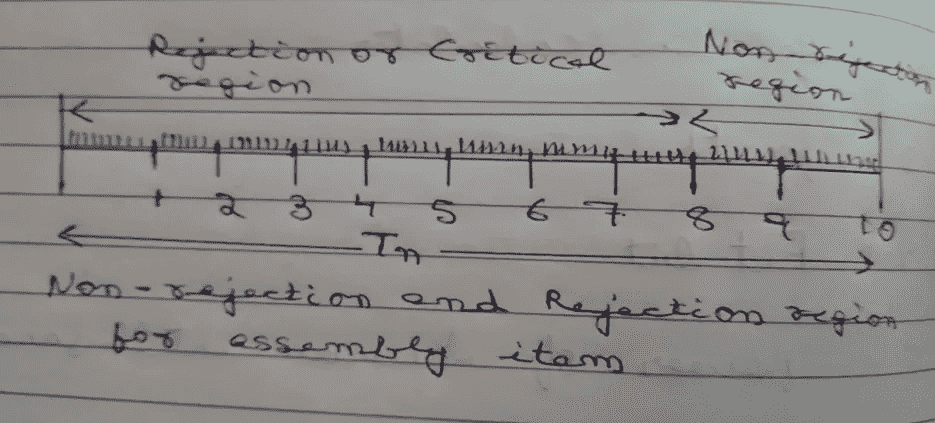 Rejection or Critical region
Non-rejection region
1 2 3 4 5 6 7 8 9 10
Tn
Non-rejection and Rejection region
for assembly item